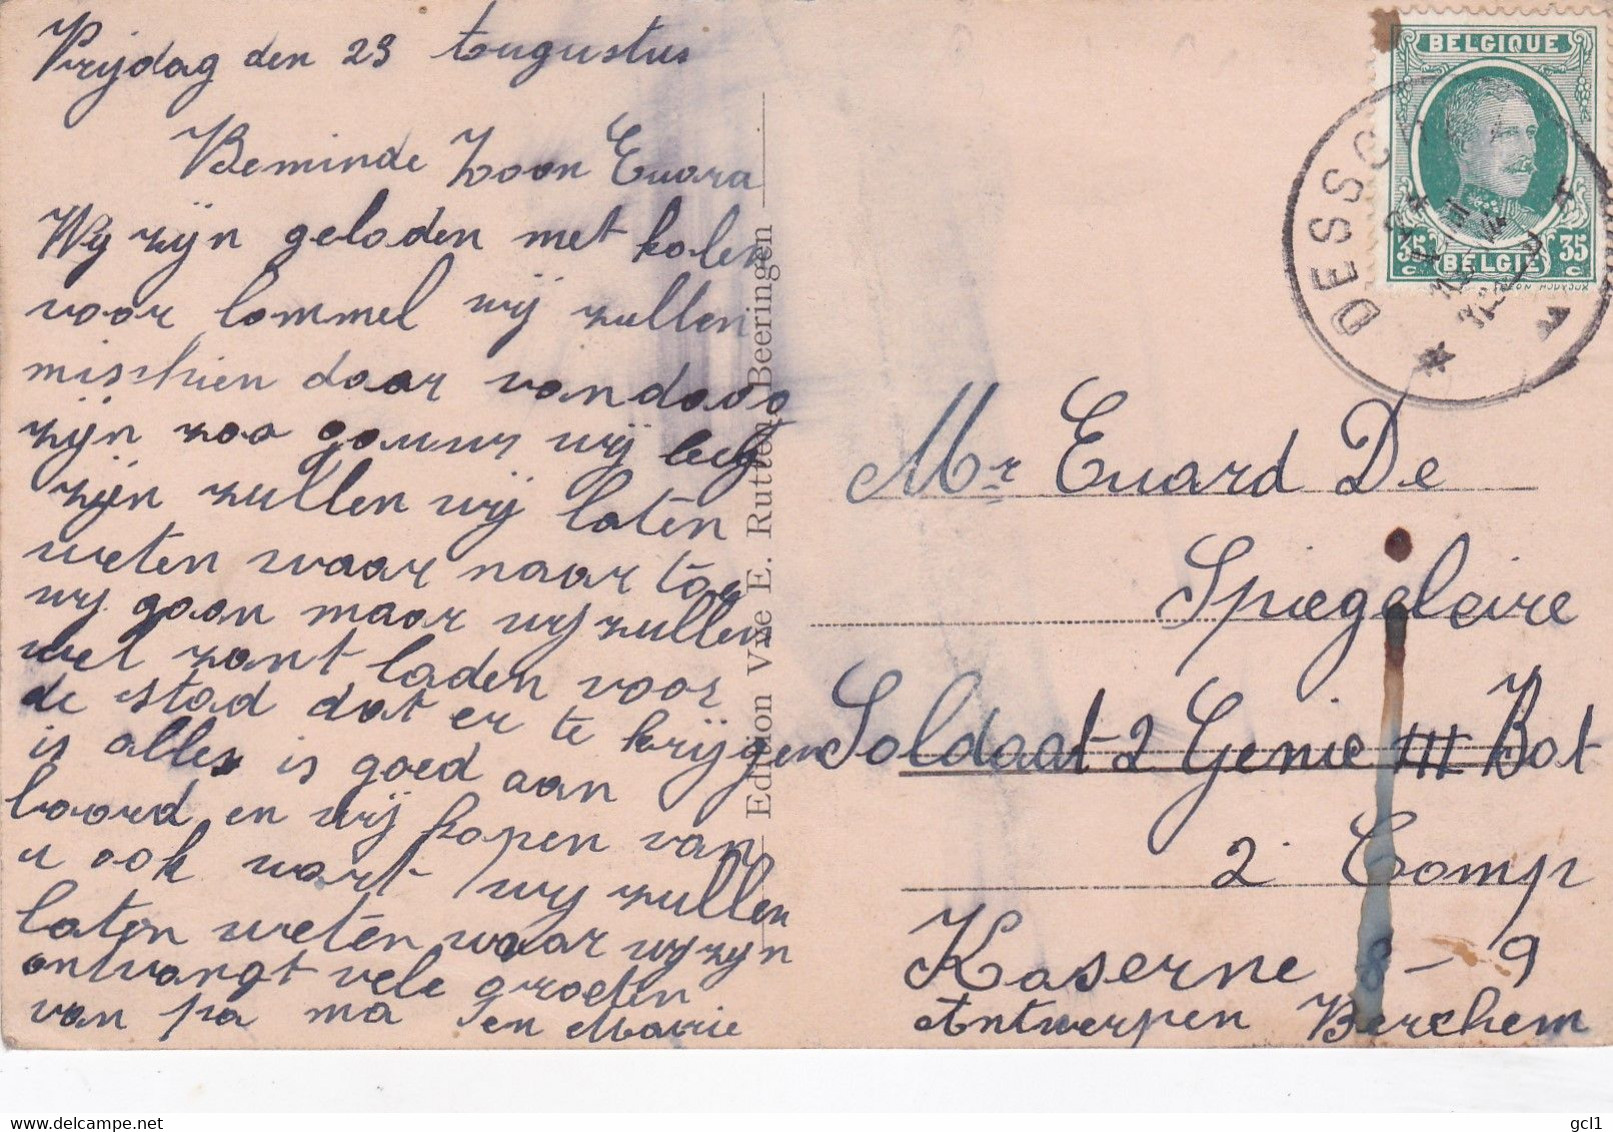 Vrijdag den 23 Augustus
Beminde Zoon Euara
Wij zijn geladen met kolen
voor lommel wij zullen
misschien daar vandaag
zijn zoo gouw wij leeg
zijn zullen wij laten
weten waar naar toe
wij gaan maar wij zullen
wel zant laden voor
de stad dat er te krijgen
is alles is goed aan
boord en wij hopen van
u ook want wij zullen
laten weten waar wij zijn
ontvangt vele groeten
van pa ma en Marie
Edition Vve E. Rutten, Beeringen
BELGIQUE
35 35
c BELGIË c
DESSC
Mr Euard De
Spiegeleire
Soldaat 2 Genie III Bat
2 Comp
Kaserne 8-9
Antwerpen Berchem
gcl1